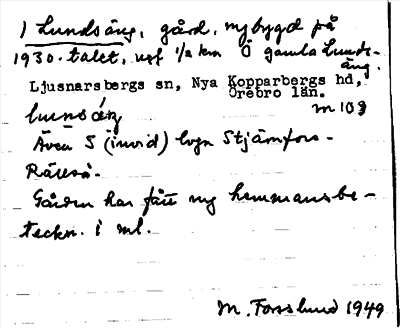 1 Lundsäng, gård, nybygd på
1930-talet, ung ½ km Ö gamla Lunds-
äng.
Ljusnarsbergs sn, Nya Kopparbergs hd,
Örebro län.
m 103
Även S (invid) lvgn Stjärnfors-
Rällså.
Gården har fått ny hemmansbe-
teckn. i ml.
M. Forsslund 1949